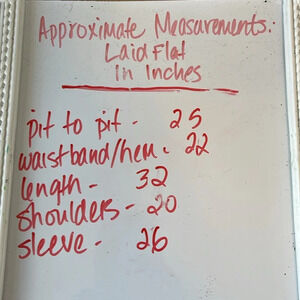 Approximate Measurements:
Laid Flat
In Inches
pit to pit - 25
waistband/hem - 22
length - 32
shoulders - 20
sleeve - 26